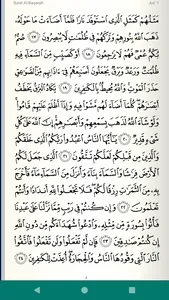 Surat Al-Baqarah
Juz' 1
مَثَلُهُمْ كَمَثَلِ ٱلَّذِى ٱسْتَوْقَدَ نَارًا فَلَمَّآ أَضَآءَتْ مَا حَوْلَهُۥ
ذَهَبَ ٱللَّهُ بِنُورِهِمْ وَتَرَكَهُمْ فِى ظُلُمَٰتٍ لَّا يُبْصِرُونَ ١٧ صُمٌّۢ
بُكْمٌ عُمْىٌ فَهُمْ لَا يَرْجِعُونَ ١٨ أَوْ كَصَيِّبٍ مِّنَ ٱلسَّمَآءِ فِيهِ
ظُلُمَٰتٌ وَرَعْدٌ وَبَرْقٌ يَجْعَلُونَ أَصَٰبِعَهُمْ فِىٓ ءَاذَانِهِم مِّنَ ٱلصَّوَٰعِقِ
حَذَرَ ٱلْمَوْتِ وَٱللَّهُ مُحِيطٌۢ بِٱلْكَٰفِرِينَ ١٩ يَكَادُ ٱلْبَرْقُ يَخْطَفُ
أَبْصَٰرَهُمْ كُلَّمَآ أَضَآءَ لَهُم مَّشَوْا۟ فِيهِ وَإِذَآ أَظْلَمَ عَلَيْهِمْ قَامُوا۟
وَلَوْ شَآءَ ٱللَّهُ لَذَهَبَ بِسَمْعِهِمْ وَأَبْصَٰرِهِمْ إِنَّ ٱللَّهَ عَلَىٰ كُلِّ
شَىْءٍ قَدِيرٌ ٢٠ يَٰٓأَيُّهَا ٱلنَّاسُ ٱعْبُدُوا۟ رَبَّكُمُ ٱلَّذِى خَلَقَكُمْ
وَٱلَّذِينَ مِن قَبْلِكُمْ لَعَلَّكُمْ تَتَّقُونَ ٢١ ٱلَّذِى جَعَلَ لَكُمُ
ٱلْأَرْضَ فِرَٰشًا وَٱلسَّمَآءَ بِنَآءً وَأَنزَلَ مِنَ ٱلسَّمَآءِ مَآءً فَأَخْرَجَ
بِهِۦ مِنَ ٱلثَّمَرَٰتِ رِزْقًا لَّكُمْ فَلَا تَجْعَلُوا۟ لِلَّهِ أَندَادًا وَأَنتُمْ
تَعْلَمُونَ ٢٢ وَإِن كُنتُمْ فِى رَيْبٍ مِّمَّا نَزَّلْنَا عَلَىٰ عَبْدِنَا
فَأْتُوا۟ بِسُورَةٍ مِّن مِّثْلِهِۦ وَٱدْعُوا۟ شُهَدَآءَكُم مِّن دُونِ ٱللَّهِ
إِن كُنتُمْ صَٰدِقِينَ ٢٣ فَإِن لَّمْ تَفْعَلُوا۟ وَلَن تَفْعَلُوا۟ فَٱتَّقُوا۟
ٱلنَّارَ ٱلَّتِى وَقُودُهَا ٱلنَّاسُ وَٱلْحِجَارَةُ أُعِدَّتْ لِلْكَٰفِرِينَ ٢٤